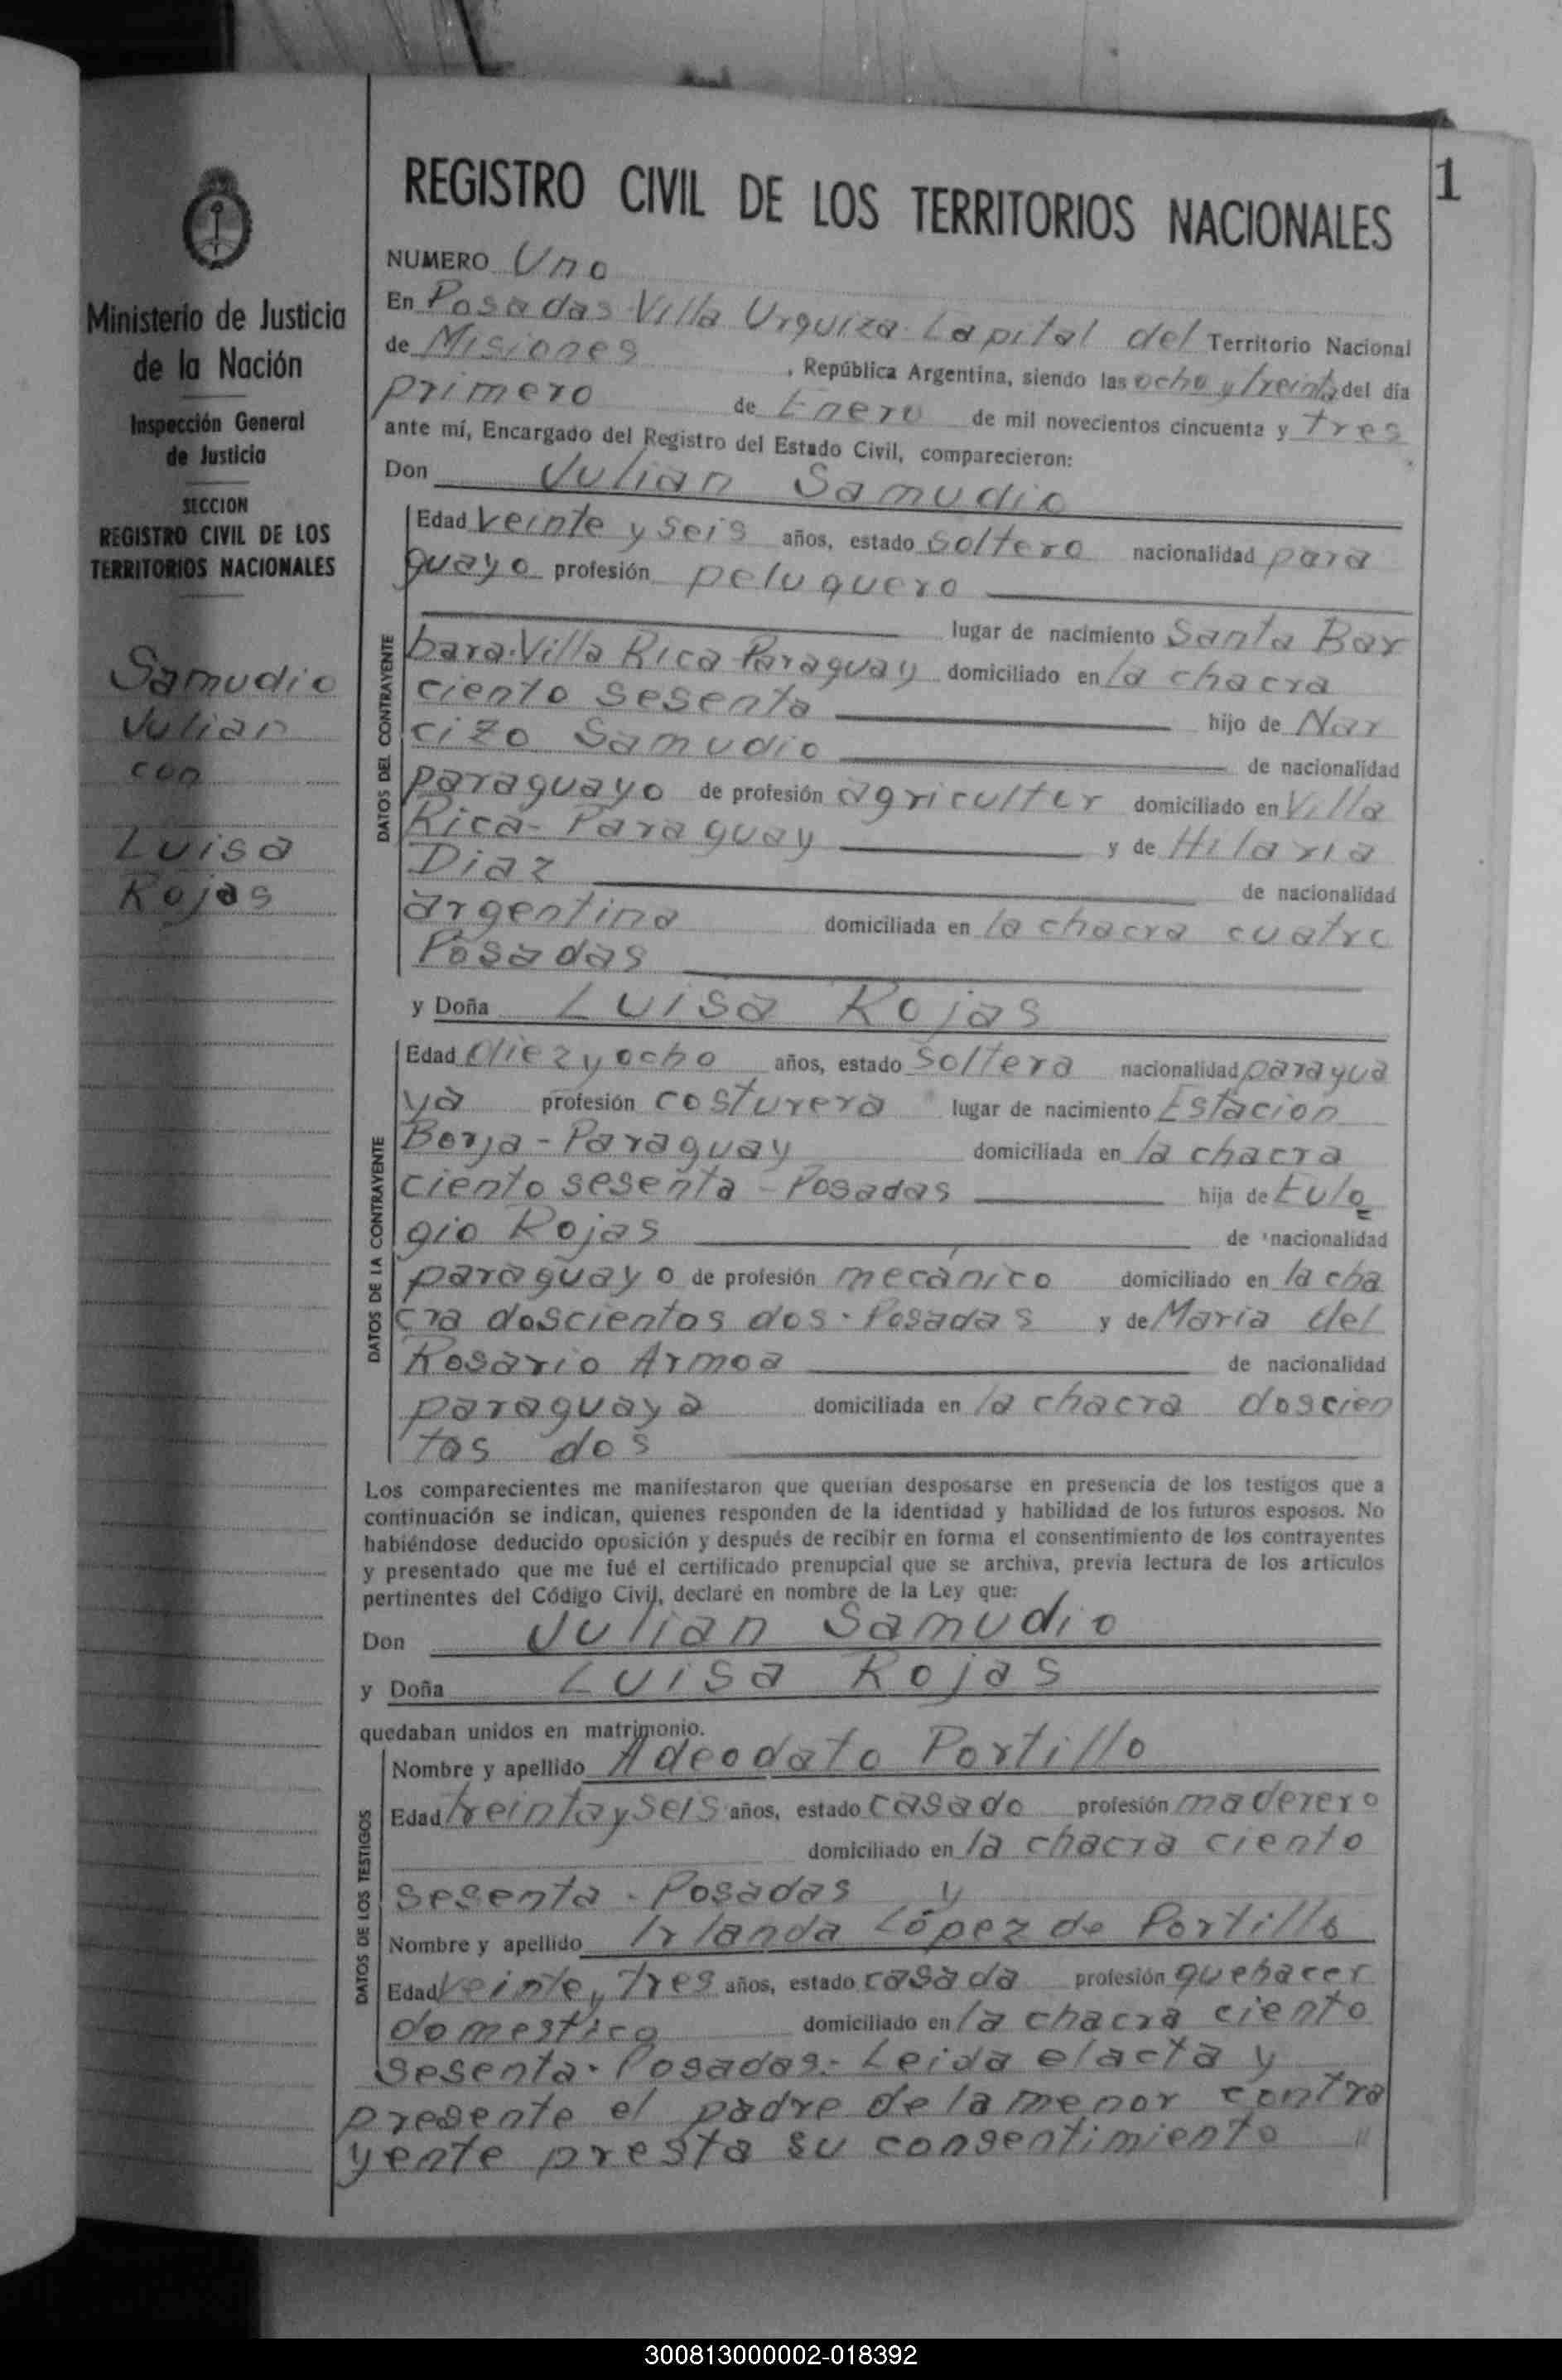 REGISTRO CIVIL DE LOS TERRITORIOS NACIONALES
1
Ministerio de Justicia
de la Nación
Inspección General
de Justicia
SECCION
REGISTRO CIVIL DE LOS
TERRITORIOS NACIONALES
Samudio
Julian
con
Luisa
Rojas
NUMERO Uno
En Posadas Villa Urquiza Capital del Territorio Nacional
de Misiones, República Argentina, siendo las ocho y treinta del día
primero de Enero de mil novecientos cincuenta y tres
ante mí, Encargado del Registro del Estado Civil, comparecieron:
Don Julian Samudio
DATOS DEL CONTRAYENTE
Edad veinte y seis años, estado soltero nacionalidad para
guayo profesión peluquero
lugar de nacimiento Santa Bar
bara-Villa Rica-Paraguay domiciliado en la chacra
ciento sesenta hijo de Nar
cizo Samudio de nacionalidad
paraguayo de profesión agricultor domiciliado en Villa
Rica-Paraguay y de Hilaria
Diaz de nacionalidad
argentina domiciliada en la chacra cuatro
Posadas
y Doña Luisa Rojas
DATOS DE LA CONTRAYENTE
Edad diez y ocho años, estado soltera nacionalidad paragua
ya profesión costurera lugar de nacimiento Estacion
Borja-Paraguay domiciliada en la chacra
ciento sesenta-Posadas hija de Eulo
gio Rojas de nacionalidad
paraguayo de profesión mecánico domiciliado en la cha
cra doscientos dos-Posadas y de Maria del
Rosario Armoa de nacionalidad
paraguaya domiciliada en la chacra doscien
tos dos
Los comparecientes me manifestaron que querían desposarse en presencia de los testigos que a
continuación se indican, quienes responden de la identidad y habilidad de los futuros esposos. No
habiéndose deducido oposición y después de recibir en forma el consentimiento de los contrayentes
y presentado que me fué el certificado prenupcial que se archiva, previa lectura de los artículos
pertinentes del Código Civil, declaré en nombre de la Ley que:
Don Julian Samudio
y Doña Luisa Rojas
quedaban unidos en matrimonio.
DATOS DE LOS TESTIGOS
Nombre y apellido Adeodato Portillo
Edad treinta y seis años, estado casado profesión maderero
domiciliado en la chacra ciento
sesenta-Posadas y
Nombre y apellido Irlanda López de Portillo
Edad veinte y tres años, estado casada profesión quehacer
domestico domiciliado en la chacra ciento
sesenta-Posadas.-Leida el acta y
presente el padre de la menor contra
yente presta su consentimiento "
300813000002-018392